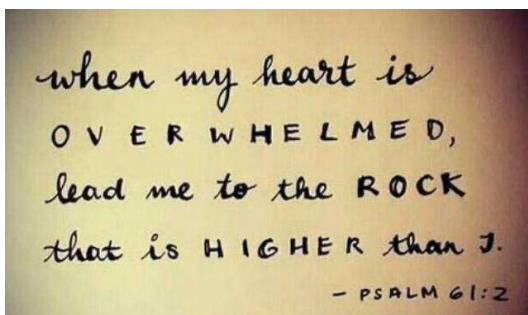 when my heart is
OVERWHELMED,
lead me to the ROCK
that is HIGHER than I.
- PSALM 61:2